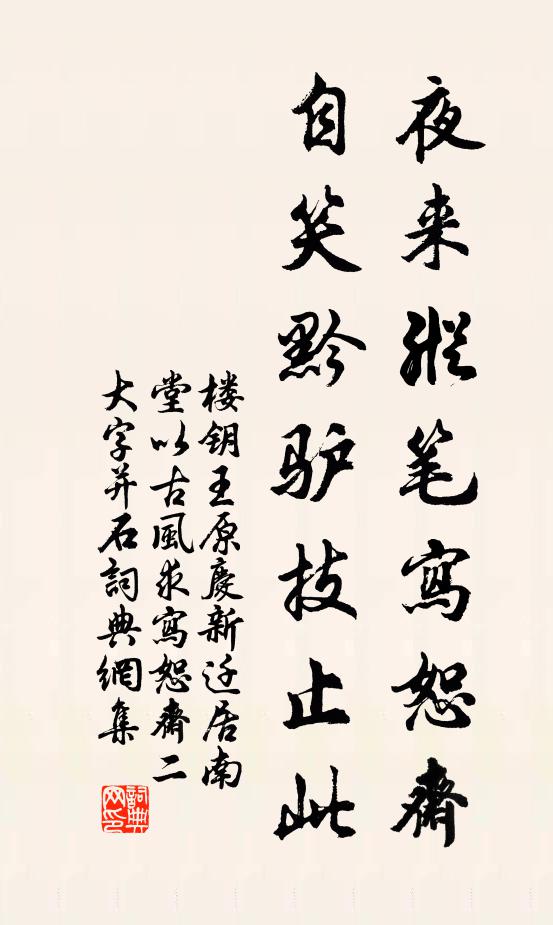 夜来縱笔寫恕齋
自笑黔驴技止此
楼钥王原慶新迁居南
堂以古風求寫恕齋二
大字并石詞典網集
詞典网印